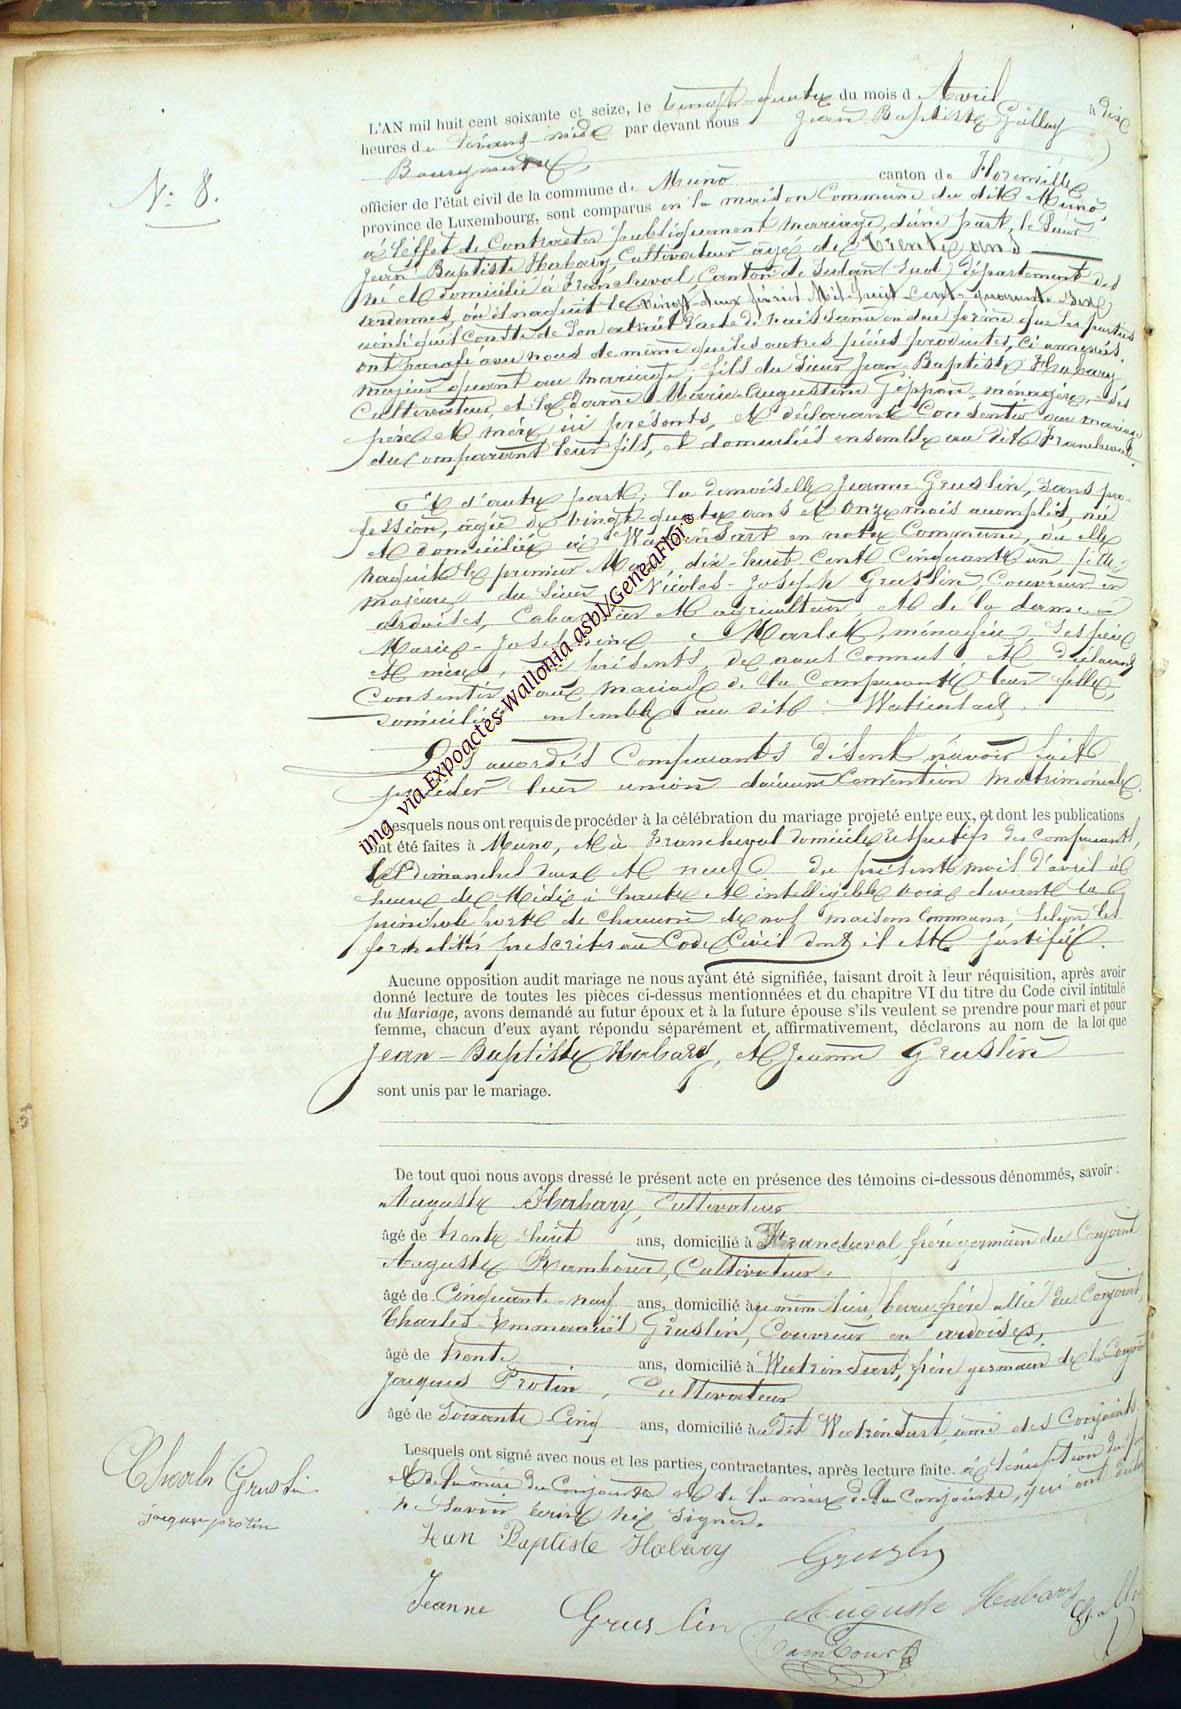 L'AN mil huit cent soixante et seize, le vingt-quatre du mois d Avril à dix
heures du avant-midi par devant nous Jean Baptiste Gillay
Bourgmestre,
N° 8.
officier de l'état civil de la commune de Muno canton de Florenville
province de Luxembourg, sont comparus en la maison Commune du dit Muno,
à l'effet de Contracter publiquement mariage, d'une part, le Sieur
Jean-Baptiste Habary, Cultivateur âgé de trente ans
né et domicilié à Francheval, Canton de Sedan (Sud) département des
Ardennes, où il naquit le vingt-deux février Mil-huit-Cent-quarante six
ainsi qu'il conste de son extrait d'acte de naissance en due forme que les parties
ont parafé avec nous de même que les autres pièces produites, ci annexées.
majeur quant au mariage; fils du Sieur Jean-Baptiste Habary
Cultivateur, et la Dame Marie-Augustine ménagère, ses
père et mère ici présents, et déclarant Consentir au mariage
du Comparant leur fils, et domiciliés ensemble au dit Francheval.
Et d'autre part; la demoiselle Jeanne Gruslin, sans pro-
fession, âgée de vingt-quatre ans et onze mois accomplis, née
et domiciliée à Watrinsart en notre Commune, où elle
naquit le premier Mai, dix-huit cent cinquante un, fille
majeure du Sieur Nicolas-Joseph Gruslin, Couvreur en
ardoises, Cabaretier et agriculteur, et de la dame
Marie-Josephine Marlet, ménagère, ses père
et mère, ici présents, de nous Connus et déclarant
Consentir au mariage de la Comparante leur fille,
domiciliés ensemble au dit Watrinsart.
Les Comparants disent n'avoir fait
précéder leur union d'aucune Convention matrimoniale.
Lesquels nous ont requis de procéder à la célébration du mariage projeté entre eux, et dont les publications
ont été faites à Muno, et à Francheval domiciles respectifs des comparants,
les Dimanches deux et neuf du présent mois d'avril à
heure de Midi à haute et intelligible voix devant la
principale porte de chacune de nos maisons communes, selon les
formalités prescrites au Code Civil dont il est justifié.
Aucune opposition audit mariage ne nous ayant été signifiée, faisant droit à leur réquisition, après avoir
donné lecture de toutes les pièces ci-dessus mentionnées et du chapitre VI du titre du Code civil intitulé
du Mariage, avons demandé au futur époux et à la future épouse s'ils veulent se prendre pour mari et pour
femme, chacun d'eux ayant répondu séparément et affirmativement, déclarons au nom de la loi que
Jean-Baptiste Habary, et Jeanne Gruslin
sont unis par le mariage.
De tout quoi nous avons dressé le présent acte en présence des témoins ci-dessous dénommés, savoir :
Auguste Habary, Cultivateur
âgé de trente-huit ans, domicilié à Francheval, frère germain du Conjoint
Auguste Rambourg, Cultivateur,
âgé de Cinquante-neuf ans, domicilié au même lieu, beau-frère allié du Conjoint,
Charles-Emmanuël Gruslin, Couvreur en ardoises,
âgé de trente ans, domicilié à Watrinsart, frère germain de la Conjointe
Jacques Protin, Cultivateur
âgé de Soixante-Cinq ans, domicilié au dit Watrinsart, ami des Conjoints.
Lesquels ont signé avec nous et les parties, contractantes, après lecture faite. à l'exception du père
et de la mère du Conjoint et de la mère de la Conjointe, qui ont déclaré
ne savoir écrire ni signer.
Charles Gruslin
jacques protin
Jean Baptiste Habary Gruslin
Jeanne Gruslin Auguste Habary
Rambourg
img via Expoactes-Wallonia asbl/GeneaFlor©